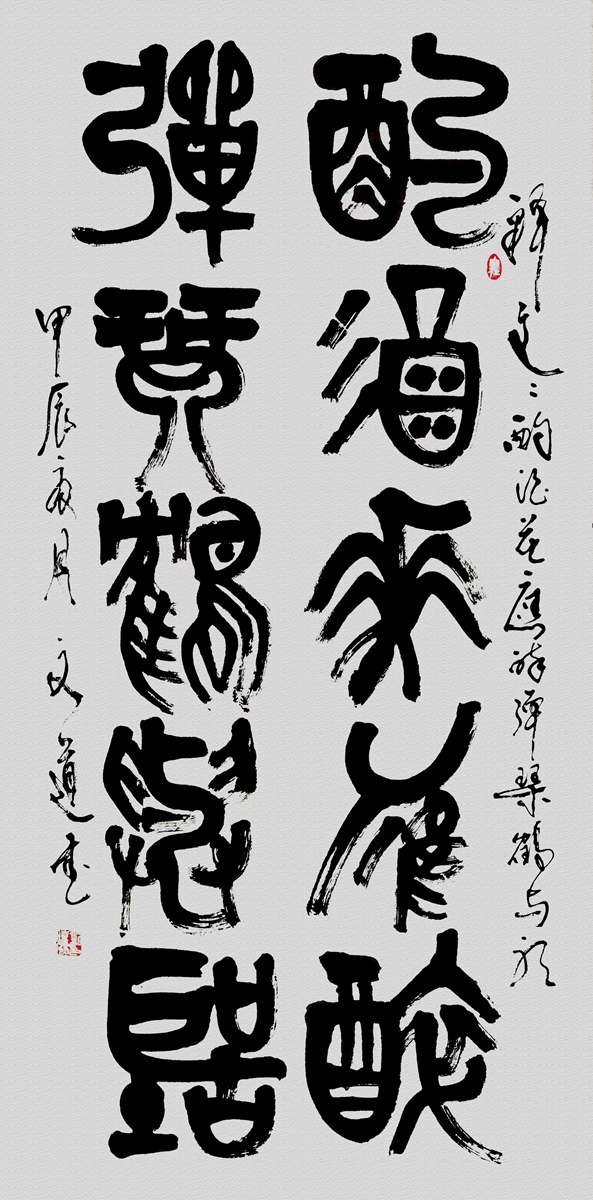 釋文：酌酒花應醉彈琴鶴與聽
酌酒花應醉
彈琴鶴與聽
甲辰夏月文道書